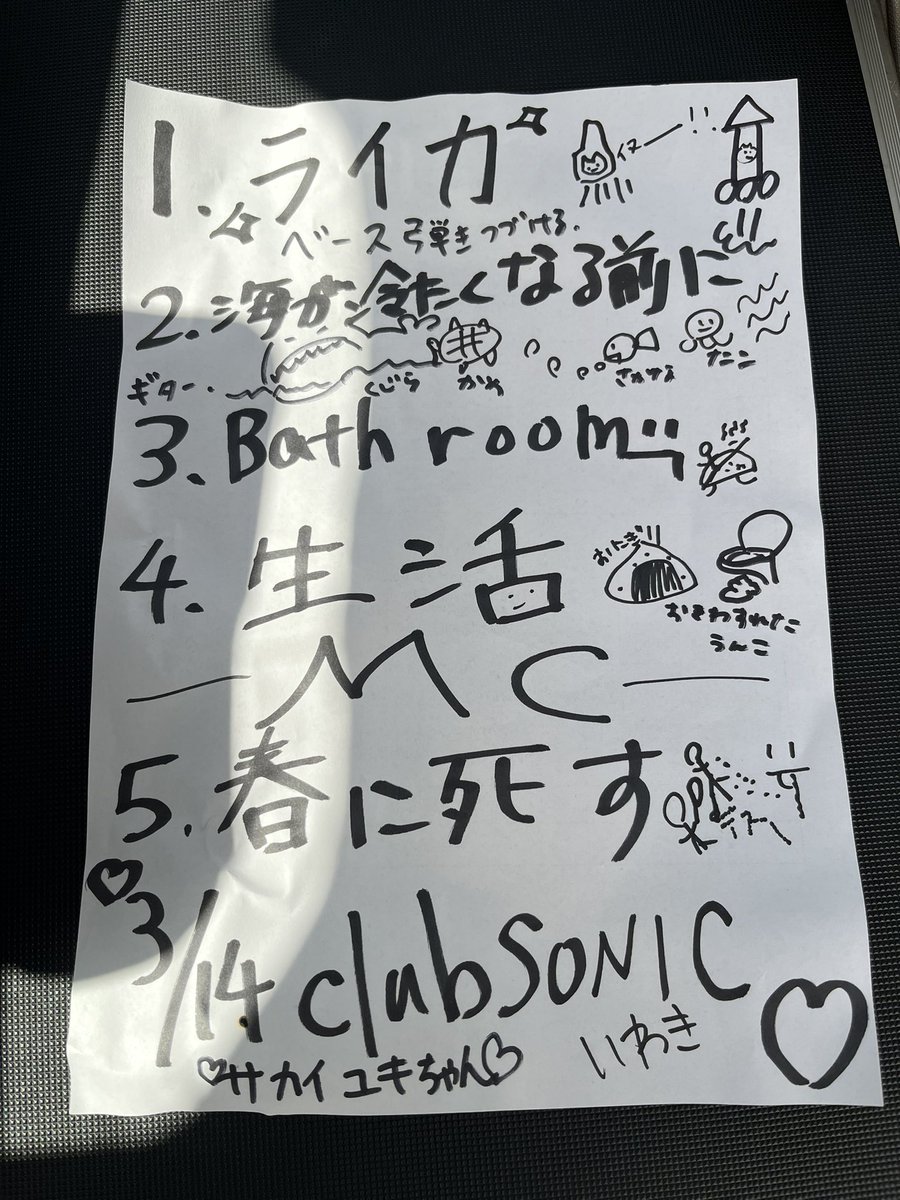 1. ライカ
イヌー !!
ベース弾きつづける.
2. 海が冷たくなる前に
ギター. くじら かめ さかな たこ
3. Bath room
4. 生活
おにぎり
おきわすれたうんこ
— MC —
5. 春に死す
3/14 club SONIC
いわき
サカイユキちゃん